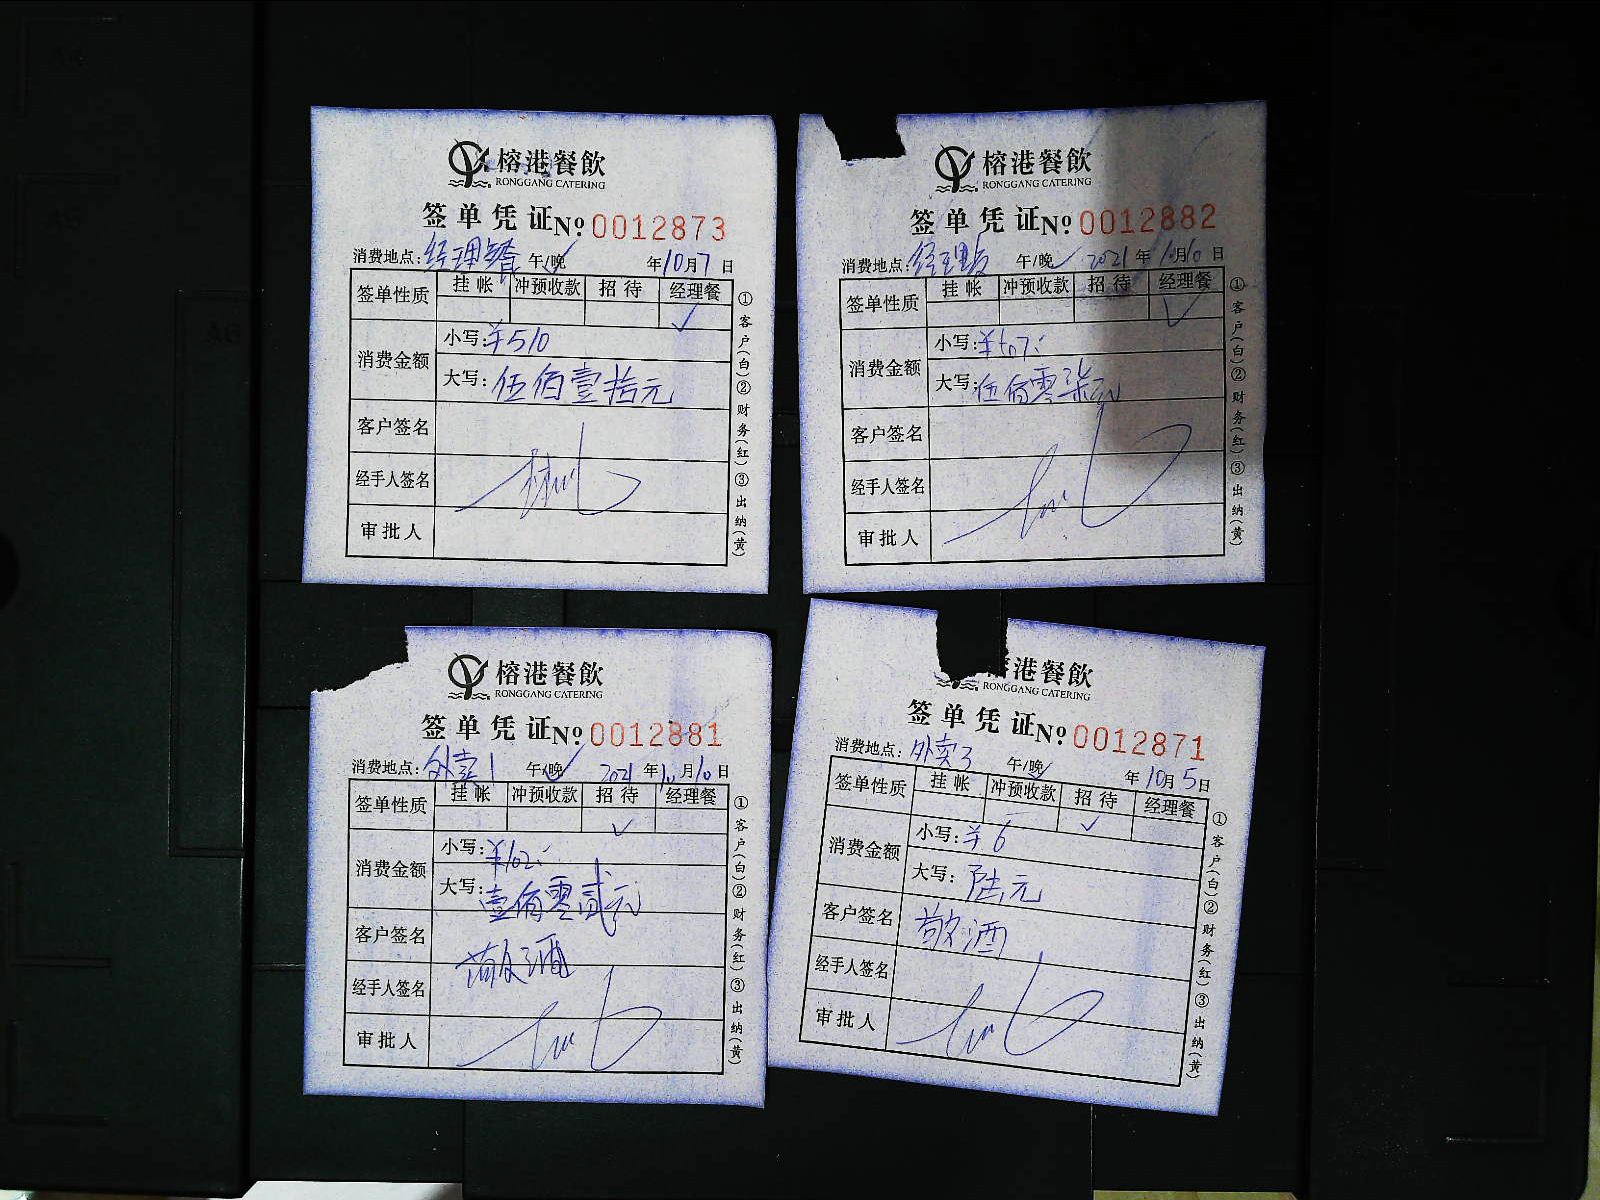 榕港餐飲
RONGGANG CATERING
签单凭证 № 0012873
消费地点: 经理餐 午/晚 年10月7日
签单性质 挂帐 冲预收款 招待 经理餐
✓
消费金额 小写: ¥510
大写: 伍佰壹拾元
客户签名
经手人签名
审批人
①客户(白)②财务(红)③出纳(黄)
榕港餐飲
RONGGANG CATERING
签单凭证 № 0012882
消费地点: 经理 午/晚 2021年10月10日
签单性质 挂帐 冲预收款 招待 经理餐
✓
消费金额 小写: ¥507:
大写: 伍佰零柒元
客户签名
经手人签名
审批人
①客户(白)②财务(红)③出纳(黄)
榕港餐飲
RONGGANG CATERING
签单凭证 № 0012881
消费地点: 外卖1 午/晚 2021年10月10日
签单性质 挂帐 冲预收款 招待 经理餐
✓
消费金额 小写: ¥102:
大写: 壹佰零贰元
客户签名 敬酒
经手人签名
审批人
①客户(白)②财务(红)③出纳(黄)
港餐飲
RONGGANG CATERING
签单凭证 № 0012871
消费地点: 外卖3 午/晚 年10月5日
签单性质 挂帐 冲预收款 招待 经理餐
✓
消费金额 小写: ¥6
大写: 陆元
客户签名 敬酒
经手人签名
审批人
①客户(白)②财务(红)③出纳(黄)